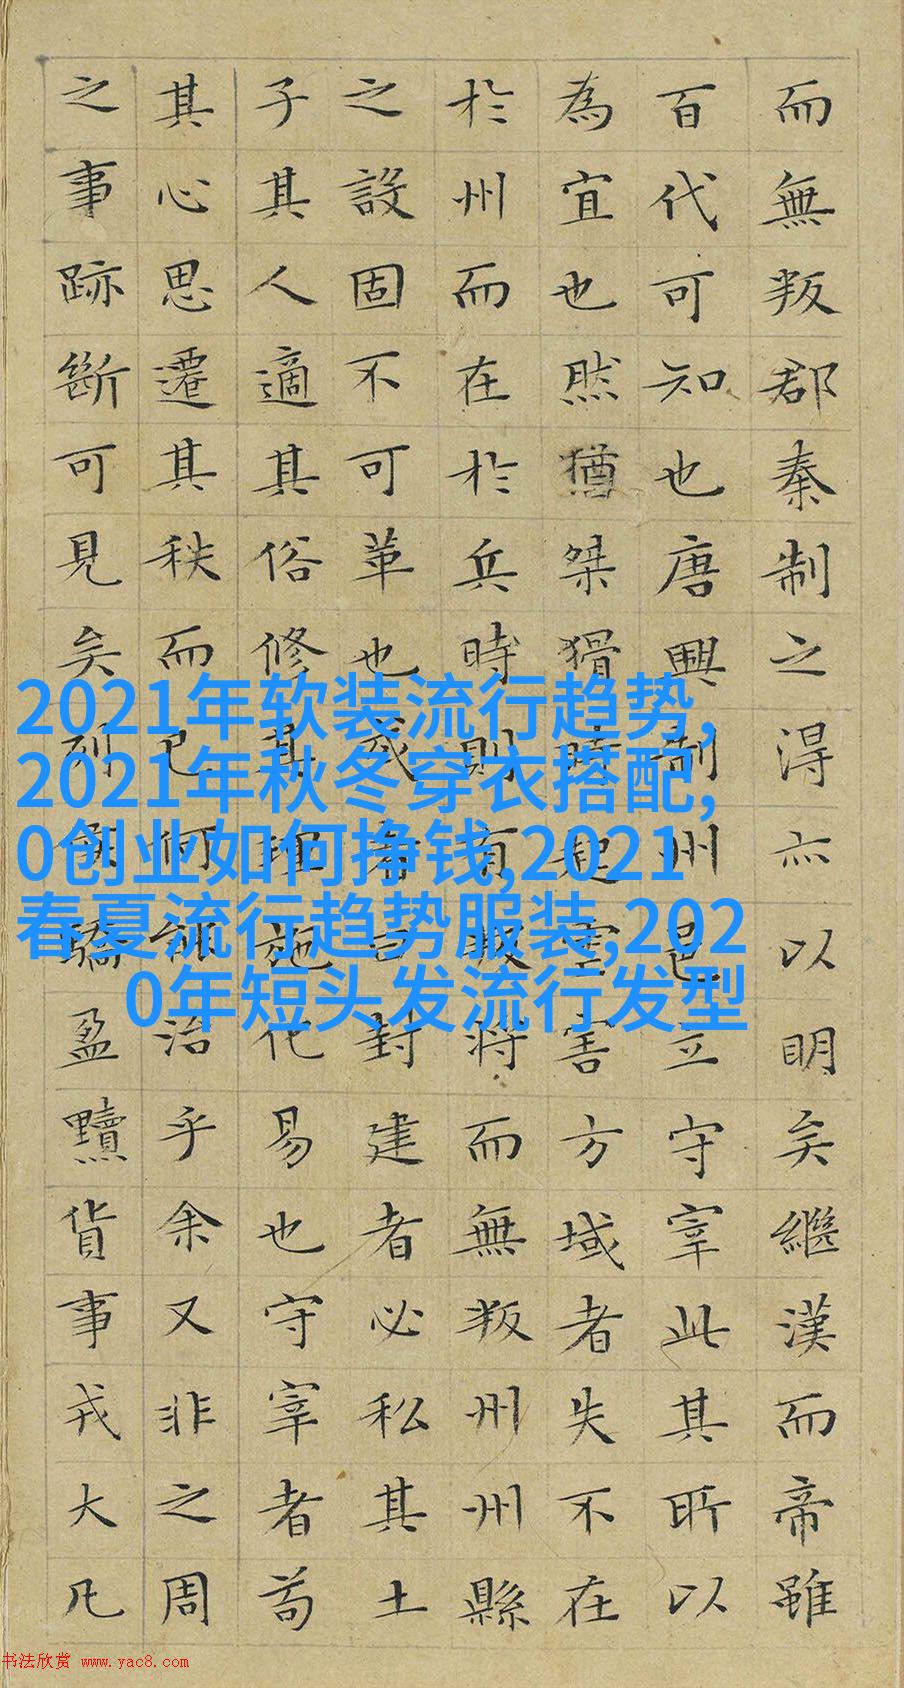 而無叛郡秦制之得亦以明矣繼漢而帝雖
百代可知也唐興制州邑立守宰此其所以
為宜也然猶桀猾時起虐害方域者失不在
於州而在於兵時則有叛將而無叛州州縣
之設固不可革也或者曰封建者必私其土
子其人適其俗修其理施化易也守宰者苟
其心思遷其秩而已何能治乎余又非之周
之事跡斷可見矣列侯驕盈黷貨事戎大凡
2021年软装流行趋势,
2021年秋冬穿衣搭配,
0创业如何挣钱,2021
春夏流行趋势服装,202
0年短头发流行发型
书法欣赏 www.yac8.com